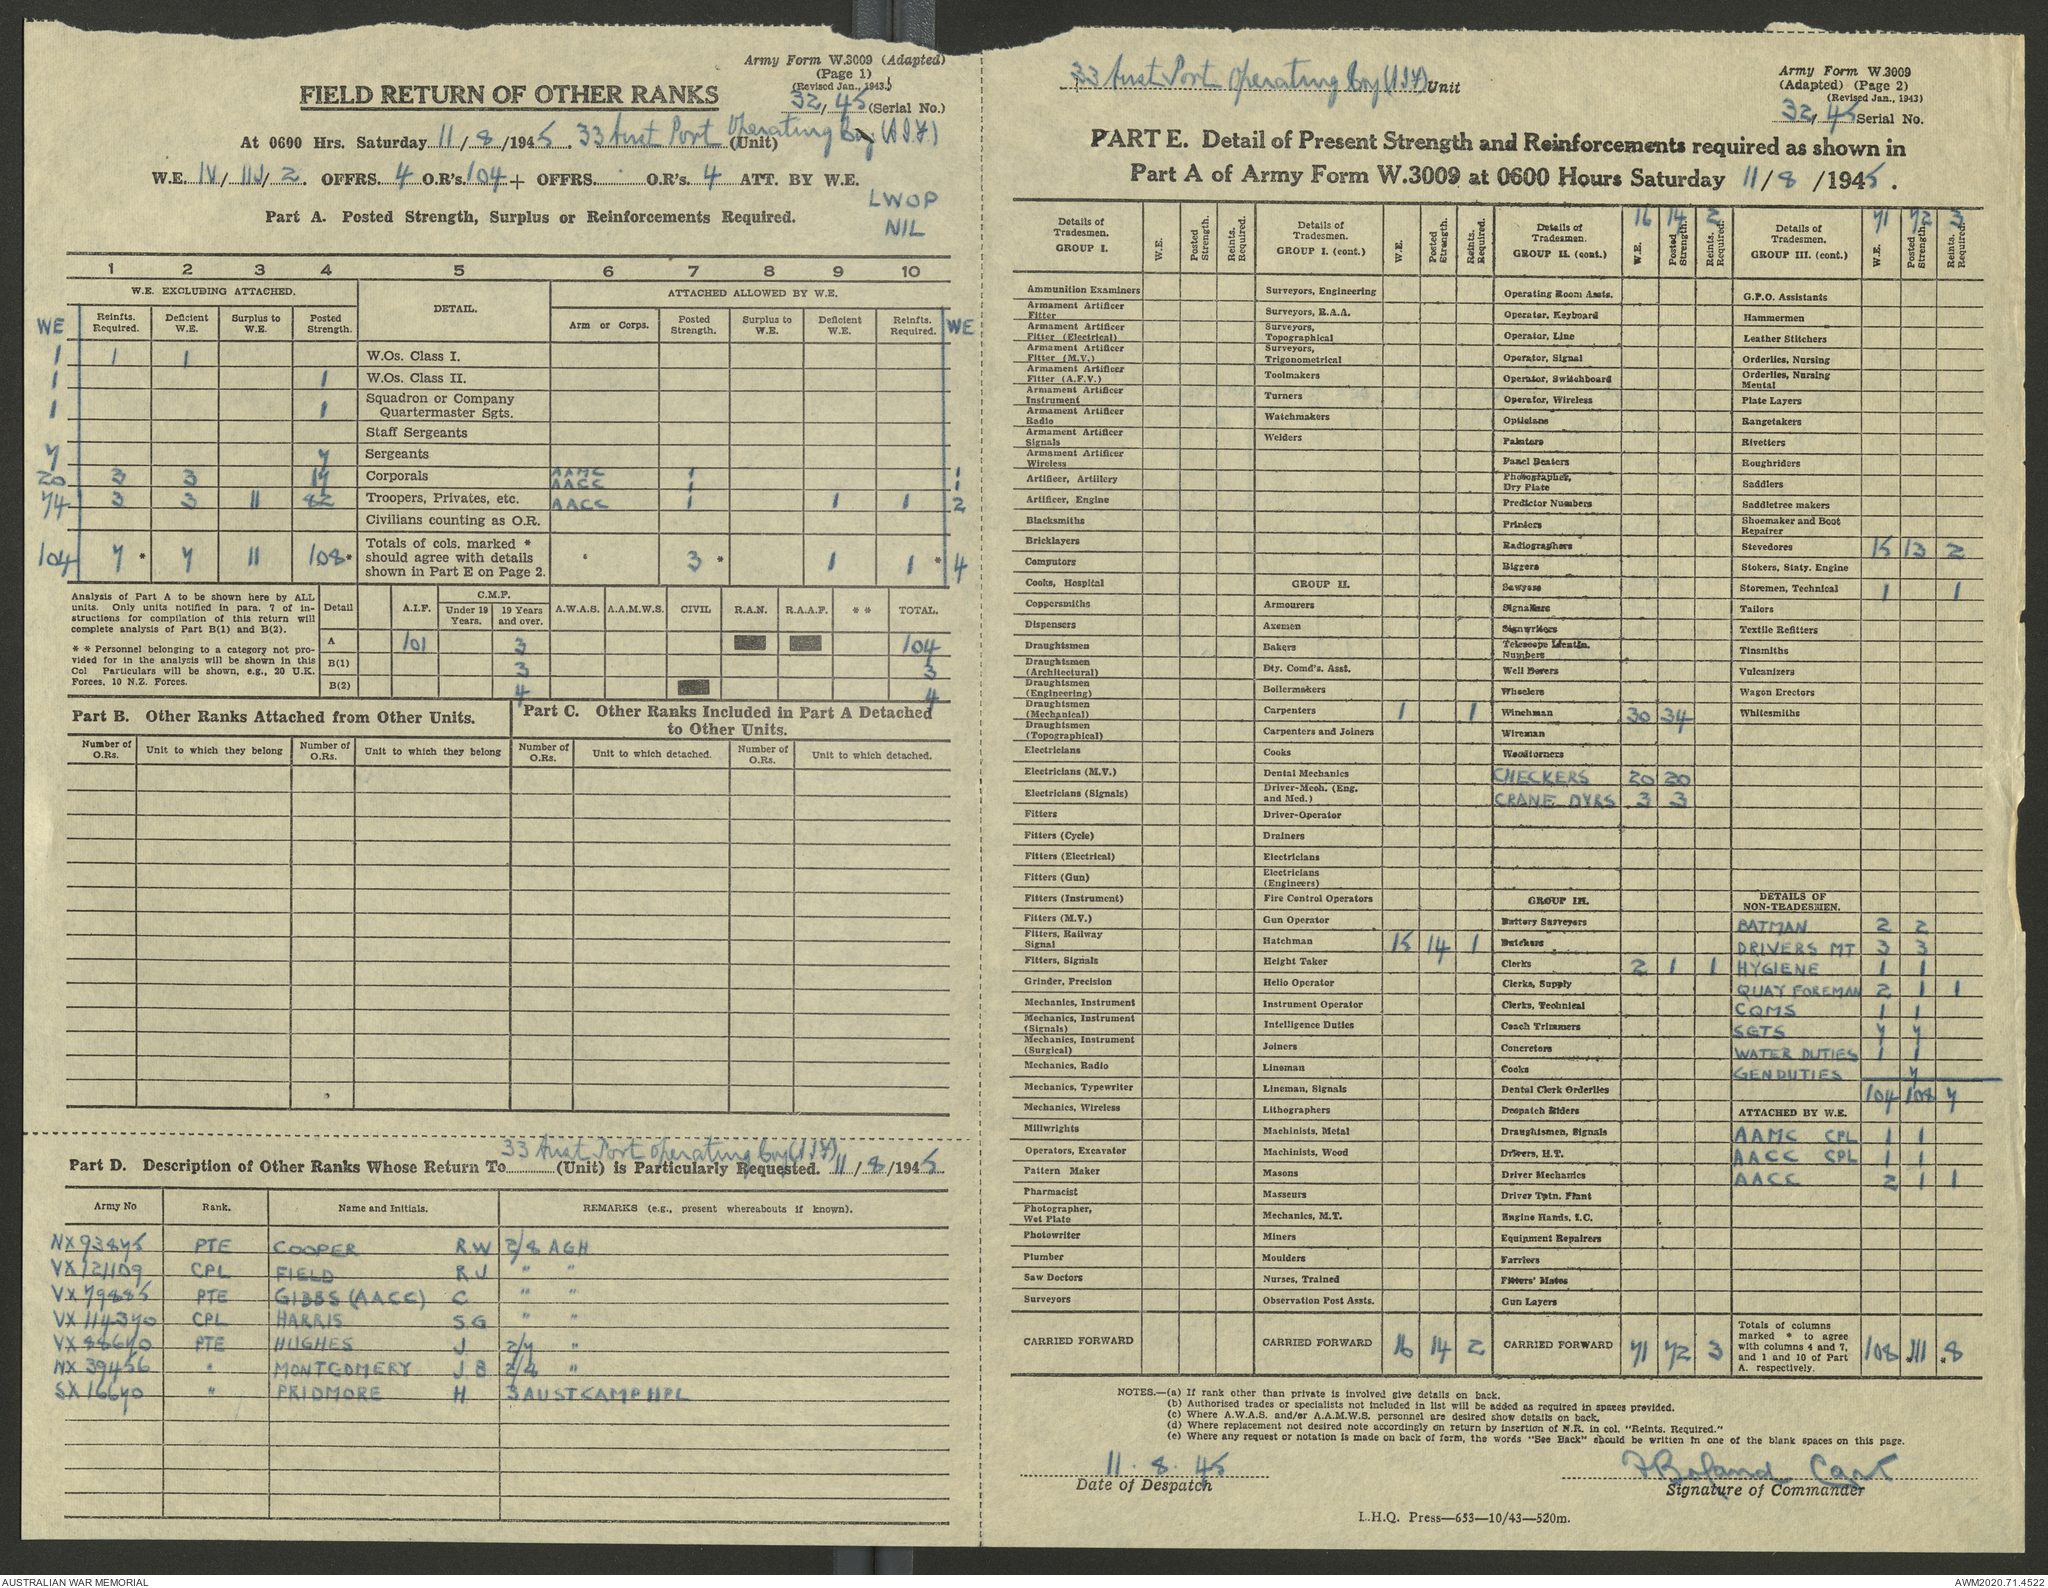 Army Form W.3009 (Adapted)
(Page 1)
(Revised Jan., 1943.)
FIELD RETURN OF OTHER RANKS
32/45 (Serial No.)
At 0600 Hrs. Saturday 11/8/1945. 33 Aust Port Operating Coy (AIF) (Unit)
W.E. IV/111/2. OFFRS. 4 O.R's. 104 + OFFRS. O.R's. 4 ATT. BY W.E.
LWOP
NIL
Part A. Posted Strength, Surplus or Reinforcements Required.
1 2 3 4 5 6 7 8 9 10
W.E. EXCLUDING ATTACHED. DETAIL. ATTACHED ALLOWED BY W.E.
WE Reinfts. Required. Deficient W.E. Surplus to W.E. Posted Strength. Arm or Corps. Posted Strength. Surplus to W.E. Deficient W.E. Reinfts. Required. WE
1 1 1 W.Os. Class I.
1 1 W.Os. Class II.
1 1 Squadron or Company Quartermaster Sgts.
Staff Sergeants
7 7 Sergeants
20 3 3 17 Corporals AAMC 1 1
AACC 1 1
74 3 3 11 82 Troopers, Privates, etc. AACC 1 1 1 2
Civilians counting as O.R.
104 7 * 7 11 108 * Totals of cols. marked * should agree with details shown in Part E on Page 2. 3 * 1 1 * 4
Analysis of Part A to be shown here by ALL units. Only units notified in para. 7 of instructions for compilation of this return will complete analysis of Part B(1) and B(2).
* * Personnel belonging to a category not provided for in the analysis will be shown in this Col Particulars will be shown, e.g., 20 U.K. Forces, 10 N.Z. Forces.
Detail A.I.F. C.M.F. Under 19 Years. 19 Years and over. A.W.A.S. A.A.M.W.S. CIVIL R.A.N. R.A.A.F. * * TOTAL.
A 101 3 104
B(1) 3 3
B(2) 4 4
Part B. Other Ranks Attached from Other Units.
Part C. Other Ranks Included in Part A Detached to Other Units.
Number of O.Rs. Unit to which they belong Number of O.Rs. Unit to which they belong Number of O.Rs. Unit to which detached. Number of O.Rs. Unit to which detached.
Part D. Description of Other Ranks Whose Return To 33 Aust Port Operating Coy (AIF) (Unit) is Particularly Requested. 11/8/1945
Army No Rank. Name and Initials. REMARKS (e.g., present whereabouts if known).
NX93875 PTE COOPER R.W 2/8 AGH
VX121109 CPL FIELD R J " "
VX79885 PTE GIBBS (AACC) C " "
VX114370 CPL HARRIS S G " "
VX88670 PTE HUGHES J 2/7 "
NX39456 " MONTGOMERY J B 2/8 "
SX16670 " PRIDMORE H 3 AUST CAMP HPL
33 Aust Port Operating Coy (AIF) Unit
Army Form W.3009
(Adapted) (Page 2)
(Revised Jan., 1943)
32/45 Serial No.
PART E. Detail of Present Strength and Reinforcements required as shown in
Part A of Army Form W.3009 at 0600 Hours Saturday 11/8/1945.
Details of Tradesmen. GROUP I. W.E. Posted Strength. Reints. Required.
Ammunition Examiners
Armament Artificer Fitter
Armament Artificer Fitter (Electrical)
Armament Artificer Fitter (M.V.)
Armament Artificer Fitter (A.F.V.)
Armament Artificer Instrument
Armament Artificer Radio
Armament Artificer Signals
Armament Artificer Wireless
Artificer, Artillery
Artificer, Engine
Blacksmiths
Bricklayers
Computors
Cooks, Hospital
Coppersmiths
Dispensers
Draughtsmen
Draughtsmen (Architectural)
Draughtsmen (Engineering)
Draughtsmen (Mechanical)
Draughtsmen (Topographical)
Electricians
Electricians (M.V.)
Electricians (Signals)
Fitters
Fitters (Cycle)
Fitters (Electrical)
Fitters (Gun)
Fitters (Instrument)
Fitters (M.V.)
Fitters, Railway Signal
Fitters, Signals
Grinder, Precision
Mechanics, Instrument
Mechanics, Instrument (Signals)
Mechanics, Instrument (Surgical)
Mechanics, Radio
Mechanics, Typewriter
Mechanics, Wireless
Millwrights
Operators, Excavator
Pattern Maker
Pharmacist
Photographer, Wet Plate
Photowriter
Plumber
Saw Doctors
Surveyors
CARRIED FORWARD
Details of Tradesmen. GROUP I. (cont.) W.E. Posted Strength. Reints. Required.
Surveyors, Engineering
Surveyors, R.A.A.
Surveyors, Topographical
Surveyors, Trigonometrical
Toolmakers
Turners
Watchmakers
Welders
GROUP II.
Armourers
Axemen
Bakers
Bty. Comd's. Asst.
Boilermakers
Carpenters 1 1
Carpenters and Joiners
Cooks
Dental Mechanics
Driver-Mech. (Eng. and Med.)
Driver-Operator
Drainers
Electricians
Electricians (Engineers)
Fire Control Operators
Gun Operator
Hatchman 15 14 1
Height Taker
Hello Operator
Instrument Operator
Intelligence Duties
Joiners
Lineman
Lineman, Signals
Lithographers
Machinists, Metal
Machinists, Wood
Masons
Masseurs
Mechanics, M.T.
Miners
Moulders
Nurses, Trained
Observation Post Assts.
CARRIED FORWARD 16 14 2
Details of Tradesmen. GROUP II. (cont.) 16 14 2 W.E. Posted Strength. Reints. Required.
Operating Room Assts.
Operator, Keyboard
Operator, Line
Operator, Signal
Operator, Switchboard
Operator, Wireless
Opticians
Painters
Panel Beaters
Photographer, Dry Plate
Predictor Numbers
Printers
Radiographers
Riggers
Sawyers
Signallers
Signwriters
Telescope Identn. Numbers
Well Borers
Wheelers
Winchman 30 34
Wireman
Woodturners
CHECKERS 20 20
CRANE DVRS 3 3
GROUP III.
Battery Surveyors
Butchers
Clerks 2 1 1
Clerks, Supply
Clerks, Technical
Coach Trimmers
Concretors
Cooks
Dental Clerk Orderlies
Despatch Riders
Draughtsmen, Signals
Drivers, H.T.
Driver Mechanics
Driver Tptn. Plant
Engine Hands, I.C.
Equipment Repairers
Farriers
Fitters' Mates
Gun Layers
CARRIED FORWARD 71 72 3
Details of Tradesmen. GROUP III. (cont.) 71 72 3 W.E. Posted Strength. Reints. Required.
G.P.O. Assistants
Hammermen
Leather Stitchers
Orderlies, Nursing
Orderlies, Nursing Mental
Plate Layers
Rangetakers
Rivetters
Roughriders
Saddlers
Saddletree makers
Shoemaker and Boot Repairer
Stevedores 15 13 2
Stokers, Staty. Engine
Storemen, Technical 1 1
Tailors
Textile Refitters
Tinsmiths
Vulcanizers
Wagon Erectors
Whitesmiths
DETAILS OF NON-TRADESMEN.
BATMAN 2 2
DRIVERS MT 3 3
HYGIENE 1 1
QUAY FOREMAN 2 1 1
CQMS 1 1
SGTS 7 7
WATER DUTIES 1 1
GEN DUTIES 7
104 108 7
ATTACHED BY W.E.
AAMC CPL 1 1
AACC CPL 1 1
AACC 2 1 1
Totals of columns marked * to agree with columns 4 and 7, and 1 and 10 of Part A. respectively. 108 *111 *8
NOTES.—(a) If rank other than private is involved give details on back.
(b) Authorised trades or specialists not included in list will be added as required in spaces provided.
(c) Where A.W.A.S. and/or A.A.M.W.S. personnel are desired show details on back.
(d) Where replacement not desired note accordingly on return by insertion of N.R. in col. "Reints. Required."
(e) Where any request or notation is made on back of form, the words "See Back" should be written in one of the blank spaces on this page.
11. 8. 45
Date of Despatch
Boland Capt
Signature of Commander
L.H.Q. Press—653—10/43—520m.
AUSTRALIAN WAR MEMORIAL
AWM2020.71.4522